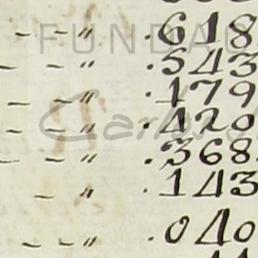 - - " .618
- - " .543
- - " .179
- - " .420
- - " .368
- " .143
- - " .040